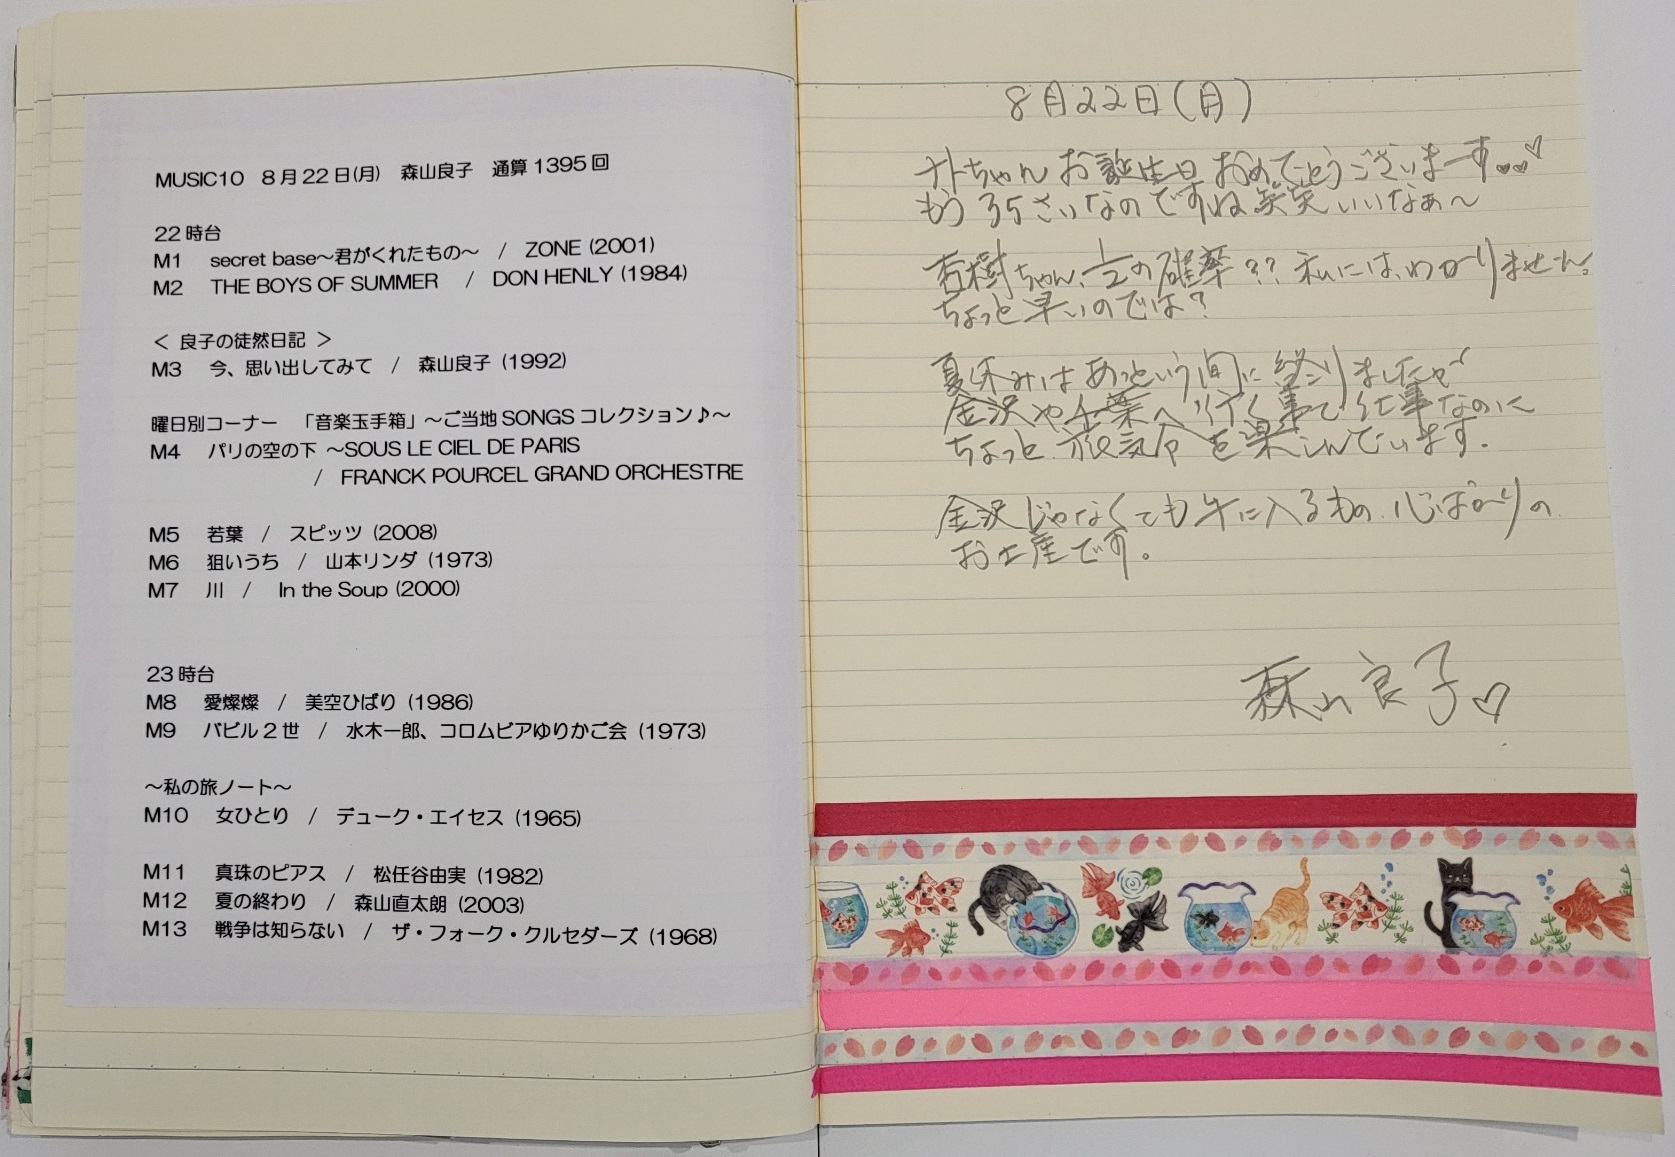 MUSIC10 8月22日(月) 森山良子 通算1395回
22時台
M1 secret base～君がくれたもの～ / ZONE (2001)
M2 THE BOYS OF SUMMER / DON HENLY (1984)
＜ 良子の徒然日記 ＞
M3 今、思い出してみて / 森山良子 (1992)
曜日別コーナー 「音楽玉手箱」～ご当地SONGSコレクション♪～
M4 パリの空の下 ～SOUS LE CIEL DE PARIS
/ FRANCK POURCEL GRAND ORCHESTRE
M5 若葉 / スピッツ (2008)
M6 狙いうち / 山本リンダ (1973)
M7 川 / In the Soup (2000)
23時台
M8 愛燦燦 / 美空ひばり (1986)
M9 バビル2世 / 水木一郎、コロムビアゆりかご会 (1973)
～私の旅ノート～
M10 女ひとり / デューク・エイセス (1965)
M11 真珠のピアス / 松任谷由実 (1982)
M12 夏の終わり / 森山直太朗 (2003)
M13 戦争は知らない / ザ・フォーク・クルセダーズ (1968)
8月22日(月)
ちゃん お誕生日 おめでとうございまーす♥♥♡
もう 35さいなのですね 笑笑 いいなぁ～
杏樹ちゃん、1/2の確率?? 私には、わかりませーん。
ちょっと早いのでは?
夏休みはあっという間に終りましたが
金沢や千葉へ行く事で仕事なのに
ちょっと旅気分を楽しんでいます。
金沢じゃなくても手に入るもの、心ばかりの
お土産です。
森山良子♡